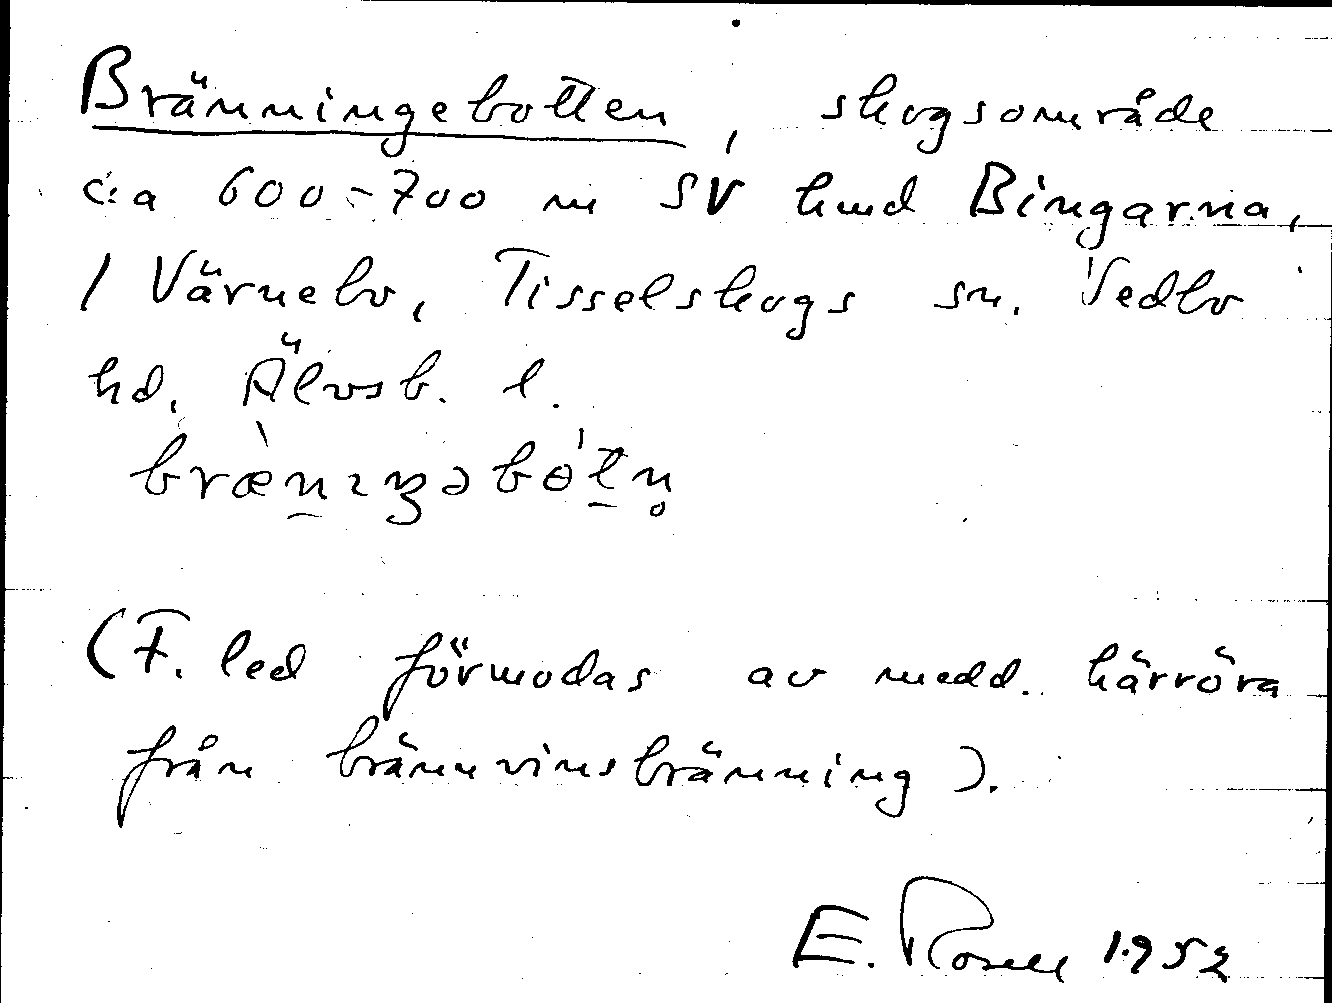 Bränningebotten, skogsområde
c:a 600-700 m SV hmd Bingarna,
/ Värnebo, Tisselskogs sn. Vedbo
hd. Älvsb. l.
(F. led förmodas av medd. härröra
från brännvinsbränning).
E. Rosell 1952